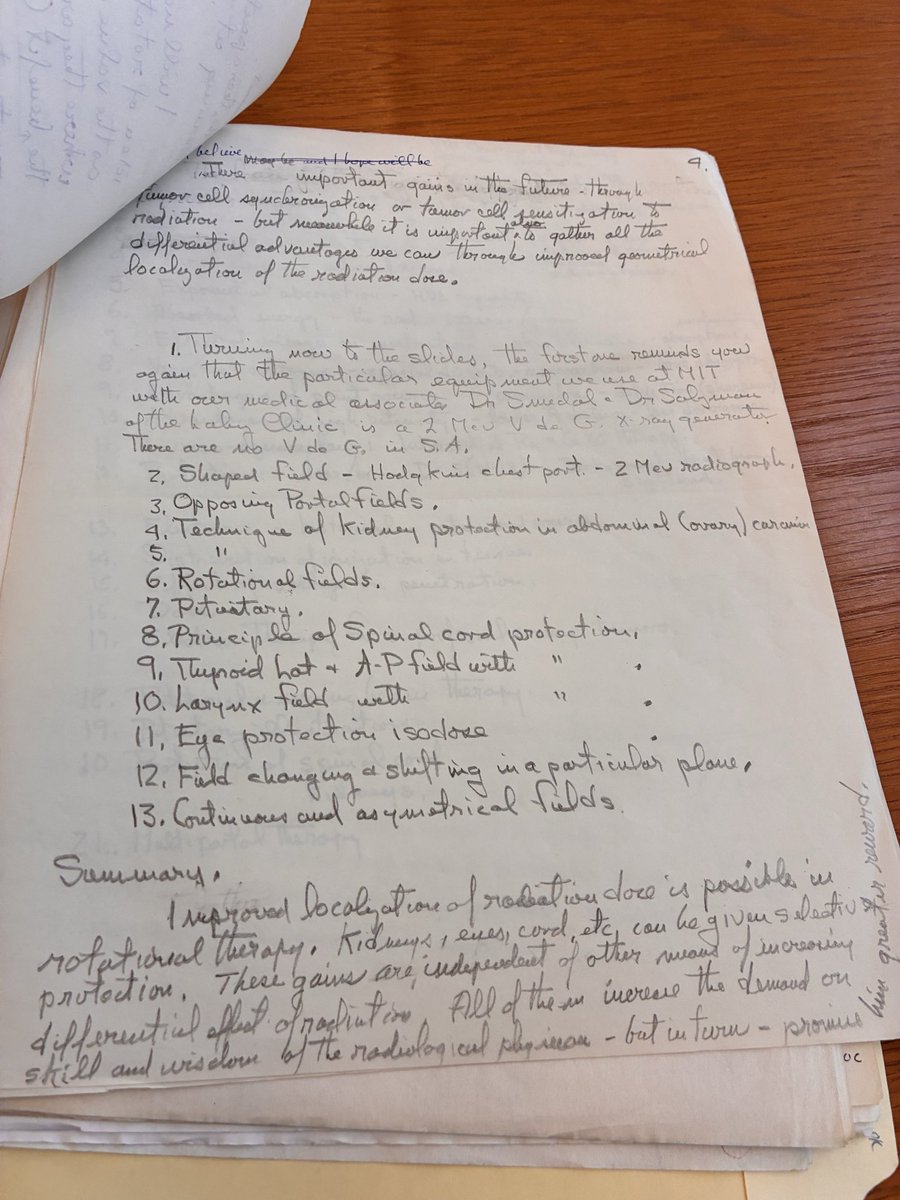 4.
believe may be and I hope will be
There important gains in the future - through
tumor cell synchronization or tumor cell sensitization to
radiation - but meanwhile it is important also to gather all the
differential advantages we can through improved geometrical
localization of the radiation dose.
1. Turning now to the slides, the first one reminds you
again that the particular equipment we use at MIT
with our medical associates Dr Smedal & Dr Salzman
of the Lahey Clinic is a 2 Mev V de G. x-ray generator.
There are no V de G. in S.A.
2. Shaped field - Hodgkins chest port. - 2 Mev radiograph.
3. Opposing Portal fields.
4. Technique of Kidney protection in abdominal (ovary)
5. "
6. Rotational fields.
7. Pituitary.
8. Principle of Spinal cord protection.
9. Thyroid Lat & A-P field with " .
10. Larynx field with " .
11. Eye protection isodose .
12. Field changing & shifting in a particular plane.
13. Continuous and asymetrical fields.
Summary.
Improved localization of radiation dose is possible in
rotational therapy. Kidneys, eyes, cord, etc, can be given selectiv
protection. These gains are independent of other means of increasing
differential effect of radiation. All of them increase the demand on
skill and wisdom of the radiological physician - but in turn - promise
him greater reward.
OC
OK